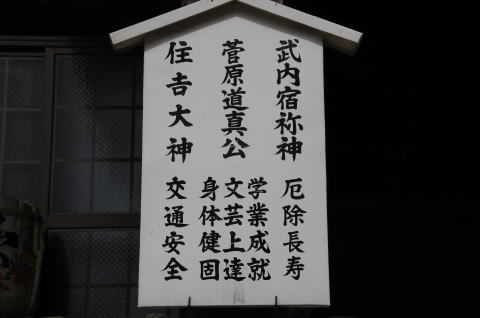 武内宿祢神 厄除長寿
菅原道真公 学業成就
文芸上達
身体健固
住吉大神 交通安全